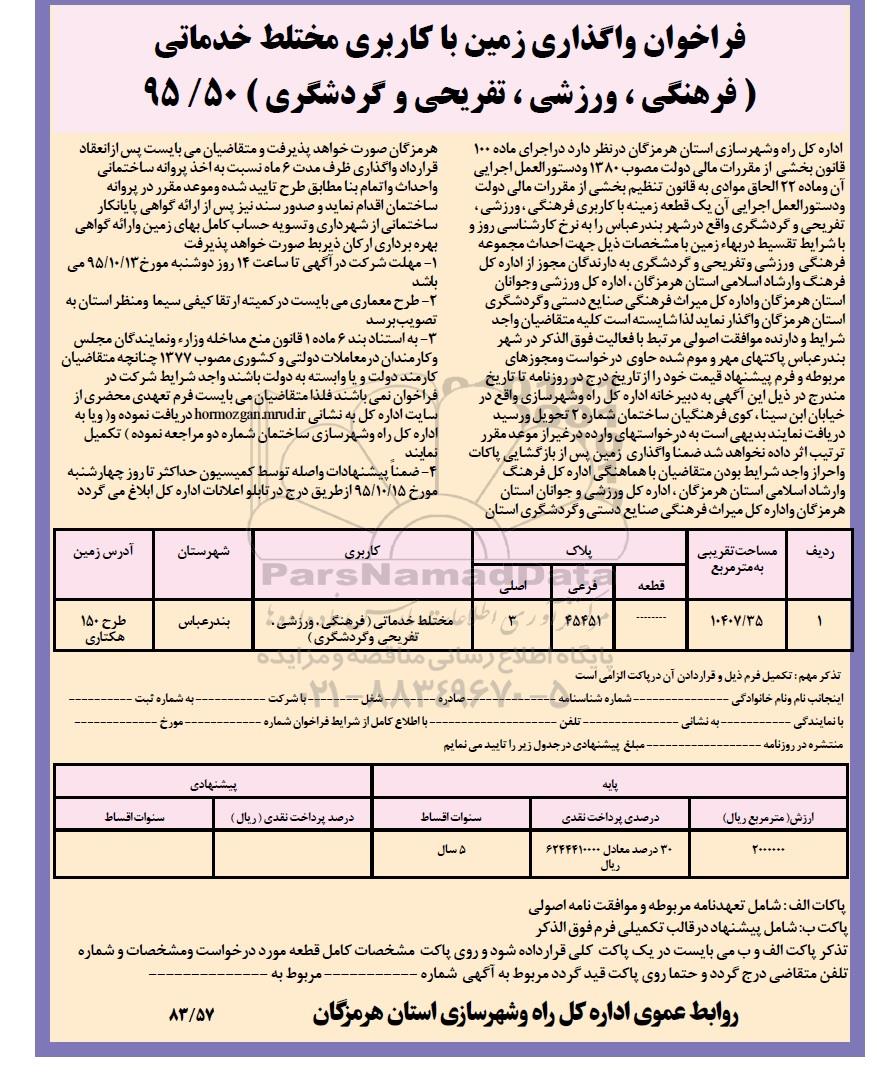 فراخوان واگذاری زمین با کاربری مختلط خدماتی
( فرهنگی ، ورزشی ، تفریحی و گردشگری ) ۵۰/ ۹۵
اداره کل راه وشهرسازی استان هرمزگان درنظر دارد دراجرای ماده ۱۰۰
قانون بخشی از مقررات مالی دولت مصوب ۱۳۸۰ ودستورالعمل اجرایی
آن وماده ۲۲ الحاق موادی به قانون تنظیم بخشی از مقررات مالی دولت
ودستورالعمل اجرایی آن یک قطعه زمینه با کاربری فرهنگی ، ورزشی ،
تفریحی و گردشگری واقع درشهر بندرعباس را به نرخ کارشناسی روز و
با شرایط تقسیط دربهاء زمین با مشخصات ذیل جهت احداث مجموعه
فرهنگی ورزشی وتفریحی و گردشگری به دارندگان مجوز از اداره کل
فرهنگ وارشاد اسلامی استان هرمزگان ، اداره کل ورزشی وجوانان
استان هرمزگان واداره کل میراث فرهنگی صنایع دستی وگردشگری
استان هرمزگان واگذار نماید لذا شایسته است کلیه متقاضیان واجد
شرایط و دارنده موافقت اصولی مرتبط با فعالیت فوق الذکر در شهر
بندرعباس پاکتهای مهر و موم شده حاوی درخواست ومجوزهای
مربوطه و فرم پیشنهاد قیمت خود را ازتاریخ درج در روزنامه تا تاریخ
مندرج در ذیل این آگهی به دبیرخانه اداره کل راه وشهرسازی واقع در
خیابان ابن سینا ، کوی فرهنگیان ساختمان شماره ۲ تحویل ورسید
دریافت نمایند بدیهی است به درخواستهای وارده درغیر از موعد مقرر
ترتیب اثر داده نخواهد شد ضمناً واگذاری زمین پس از بازگشایی پاکات
واحراز واجد شرایط بودن متقاضیان با هماهنگی اداره کل فرهنگ
وارشاد اسلامی استان هرمزگان ، اداره کل ورزشی و جوانان استان
هرمزگان واداره کل میراث فرهنگی صنایع دستی وگردشگری استان
هرمزگان صورت خواهد پذیرفت و متقاضیان می بایست پس ازانعقاد
قرارداد واگذاری ظرف مدت ۶ ماه نسبت به اخذ پروانه ساختمانی
واحداث واتمام بنا مطابق طرح تایید شده وموعد مقرر در پروانه
ساختمان اقدام نماید و صدور سند نیز پس از ارائه گواهی پایانکار
ساختمانی از شهرداری و تسویه حساب کامل بهای زمین وارائه گواهی
بهره برداری ارکان ذیربط صورت خواهد پذیرفت
۱- مهلت شرکت در آگهی تا ساعت ۱۴ روز دوشنبه مورخ ۹۵/۱۰/۱۳ می
باشد
۲- طرح معماری می بایست درکمیته ارتقا کیفی سیما ومنظر استان به
تصویب برسد
۳- به استناد بند ۶ ماده ۱ قانون منع مداخله وزراء ونمایندگان مجلس
وکارمندان درمعاملات دولتی و کشوری مصوب ۱۳۷۷ چنانچه متقاضیان
کارمند دولت و یا وابسته به دولت باشند واجد شرایط شرکت در
فراخوان نمی باشند فلذا متقاضیان می بایست فرم تعهدی محضری از
سایت اداره کل به نشانی hormozgan.mrud.ir دریافت نموده و( ویا به
اداره کل راه وشهرسازی ساختمان شماره دو مراجعه نموده ) تکمیل
نمایند
۴- ضمناً پیشنهادات واصله توسط کمیسیون حداکثر تا روز چهارشنبه
مورخ ۹۵/۱۰/۱۵ ازطریق درج درتابلو اعلانات اداره کل ابلاغ می گردد
ردیف مساحت تقریبی به مترمربع پلاک کاربری شهرستان آدرس زمین
قطعه فرعی اصلی
۱ ۱۰۴۰۷/۳۵ -------- ۴۵۴۵۱ ۳ مختلط خدماتی ( فرهنگی ، ورزشی ، تفریحی وگردشگری ) بندرعباس طرح ۱۵۰ هکتاری
ParsNamadData
پایگاه اطلاع رسانی مناقصه و مزایده
۰۲۱-۸۸۳۴۹۶۷۰-۵
تذکر مهم : تکمیل فرم ذیل و قراردادن آن درپاکت الزامی است
اینجانب نام ونام خانوادگی --------------- شماره شناسنامه ------------ صادره -------- شغل -------- با شرکت ----------- به شماره ثبت -----------
با نمایندگی ----------- به نشانی --------------- تلفن -------------------- با اطلاع کامل از شرایط فراخوان شماره ------------ مورخ -------------
منتشره در روزنامه ------------------ مبلغ پیشنهادی درجدول زیر را تایید می نمایم
پایه پیشنهادی
ارزش( مترمربع ریال) درصدی پرداخت نقدی سنوات اقساط درصد پرداخت نقدی ( ریال ) سنوات اقساط
۲۰۰۰۰۰۰ ۳۰ درصد معادل ۶۲۴۴۴۱۰۰۰۰ ریال ۵ سال
پاکات الف : شامل تعهدنامه مربوطه و موافقت نامه اصولی
پاکت ب: شامل پیشنهاد درقالب تکمیلی فرم فوق الذکر
تذکر پاکت الف و ب می بایست در یک پاکت کلی قرارداده شود و روی پاکت مشخصات کامل قطعه مورد درخواست ومشخصات و شماره
تلفن متقاضی درج گردد و حتما روی پاکت قید گردد مربوط به آگهی شماره ------------ مربوط به ---------------
روابط عموی اداره کل راه وشهرسازی استان هرمزگان
۸۳/۵۷